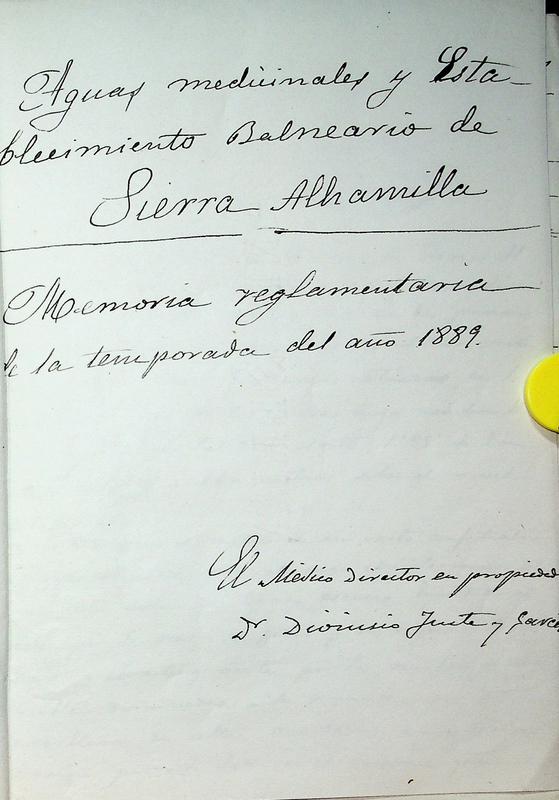 Aguas medicinales y Esta-
blecimiento Balneario de
Sierra Alhamilla
Memoria reglamentaria
de la temporada del año 1889.
El Médico Director en propiedad
Dr. Dionisio Juste y Garcé